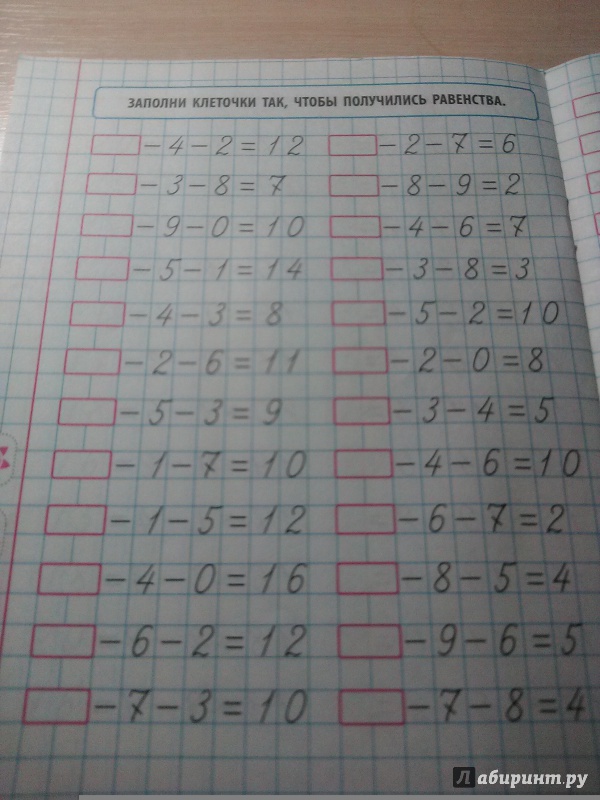 ЗАПОЛНИ КЛЕТОЧКИ ТАК, ЧТОБЫ ПОЛУЧИЛИСЬ РАВЕНСТВА.
-4-2=12 -2-7=6
-3-8=7 -8-9=2
-9-0=10 -4-6=7
-5-1=14 -3-8=3
-4-3=8 -5-2=10
-2-6=11 -2-0=8
-5-3=9 -3-4=5
-1-7=10 -4-6=10
-1-5=12 -6-7=2
-4-0=16 -8-5=4
-6-2=12 -9-6=5
-7-3=10 -7-8=4
Лабиринт.ру